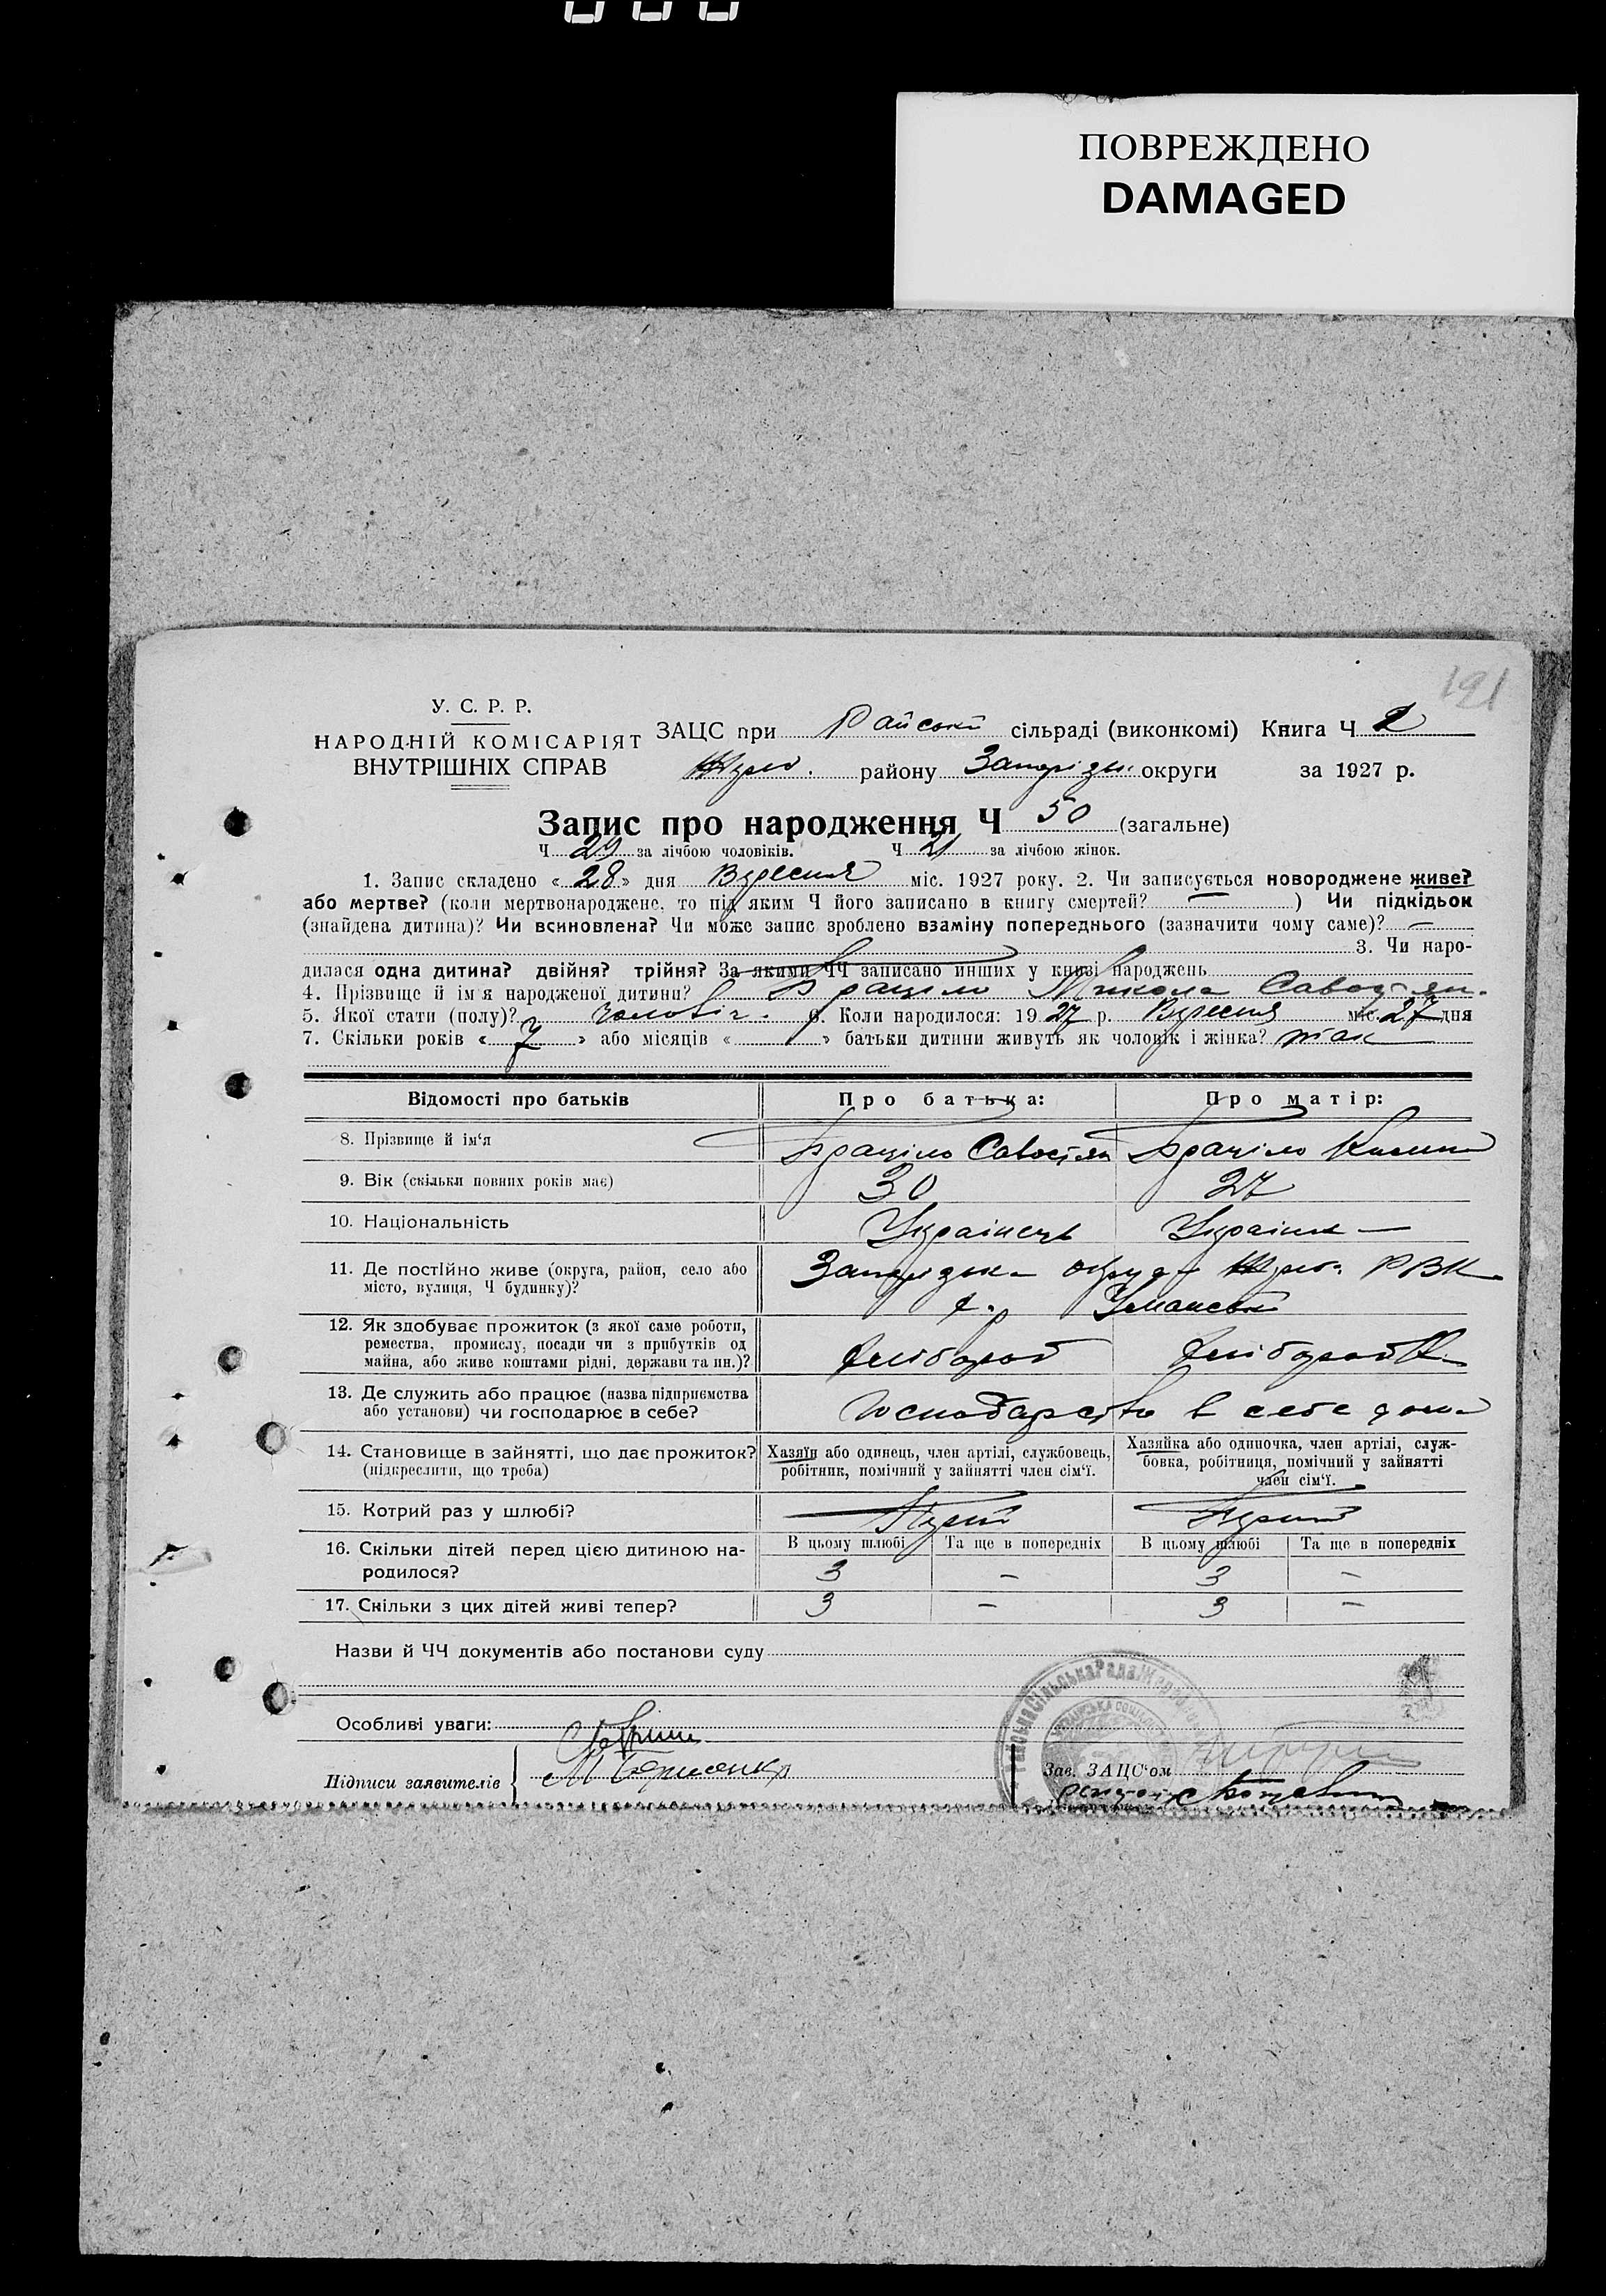 ПОВРЕЖДЕНО
DAMAGED
191
У. С. Р. Р.
НАРОДНІЙ КОМІСАРІЯТ
ВНУТРІШНІХ СПРАВ
ЗАЦС при Райській сільраді (виконкомі) Книга Ч 2
району округи за 1927 р.
Запис про народження Ч 50 (загальне)
Ч 29 за лічбою чоловіків. Ч 21 за лічбою жінок.
1. Запис складено « 28 » дня Вересня міс. 1927 року. 2. Чи записується новороджене живе?
або мертве? (коли мертвонароджене, то під яким Ч його записано в книгу смертей? — ) Чи підкідьок
(знайдена дитина)? Чи всиновлена? Чи може запис зроблено взаміну попереднього (зазначити чому саме)? —
3. Чи наро-
дилася одна дитина? двійня? трійня? За якими ЧЧ записано инших у книзі народжень
4. Прізвище й ім'я народженої дитини? Микола
5. Якої стати (полу)? чоловіч. 6. Коли народилося: 1927 р. Вересня міс. 27 дня
7. Скільки років « 7 » або місяців « » батьки дитини живуть як чоловік і жінка? так
Відомості про батьків Про батька: Про матір:
8. Прізвище й ім'я
9. Вік (скільки повних років має) 30 27
10. Національність Українець Українка
11. Де постійно живе (округа, район, село або
місто, вулиця, Ч будинку)?
РВК
12. Як здобуває прожиток (з якої саме роботи,
ремества, промислу, посади чи з прибутків од
майна, або живе коштами рідні, держави та ин.)?
хлібороб хлібороб
13. Де служить або працює (назва підприємства
або установи) чи господарює в себе?
Господарство в себе дома
14. Становище в зайнятті, що дає прожиток?
(підкреслити, що треба)
Хазяїн або одинець, член артілі, службовець,
робітник, помічний у зайнятті член сім'ї.
Хазяйка або одиночка, член артілі, служ-
бовка, робітниця, помічний у зайнятті
член сім'ї.
15. Котрий раз у шлюбі? Перший Перший
16. Скільки дітей перед цією дитиною на-
родилося?
В цьому шлюбі Та ще в попередніх В цьому шлюбі Та ще в попередніх
3 — 3 —
17. Скільки з цих дітей живі тепер? 3 — 3 —
Назви й ЧЧ документів або постанови суду
Особливі уваги:
Підписи заявителів
Зав. ЗАЦС'ом